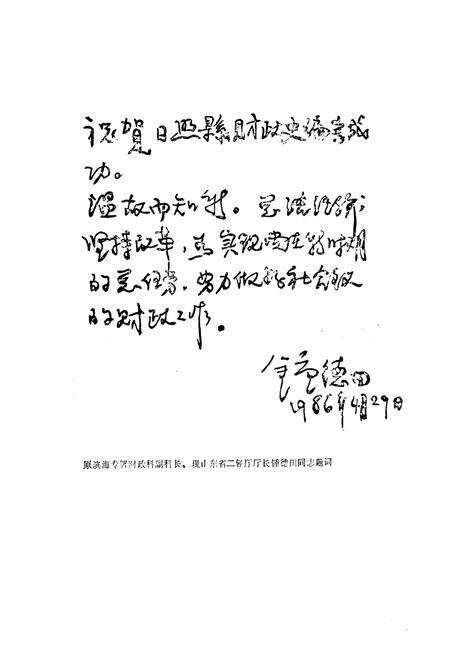 祝贺日照縣财政史编写成
功。
温故而知新。总结经验；
坚持改革，为实现党在新时期
的总任务，努力做好社会主义
的财政工作。
德田
1986年4月29日
原滨海专署财政科副科长、现山东省二轻厅厅长 德田同志题词